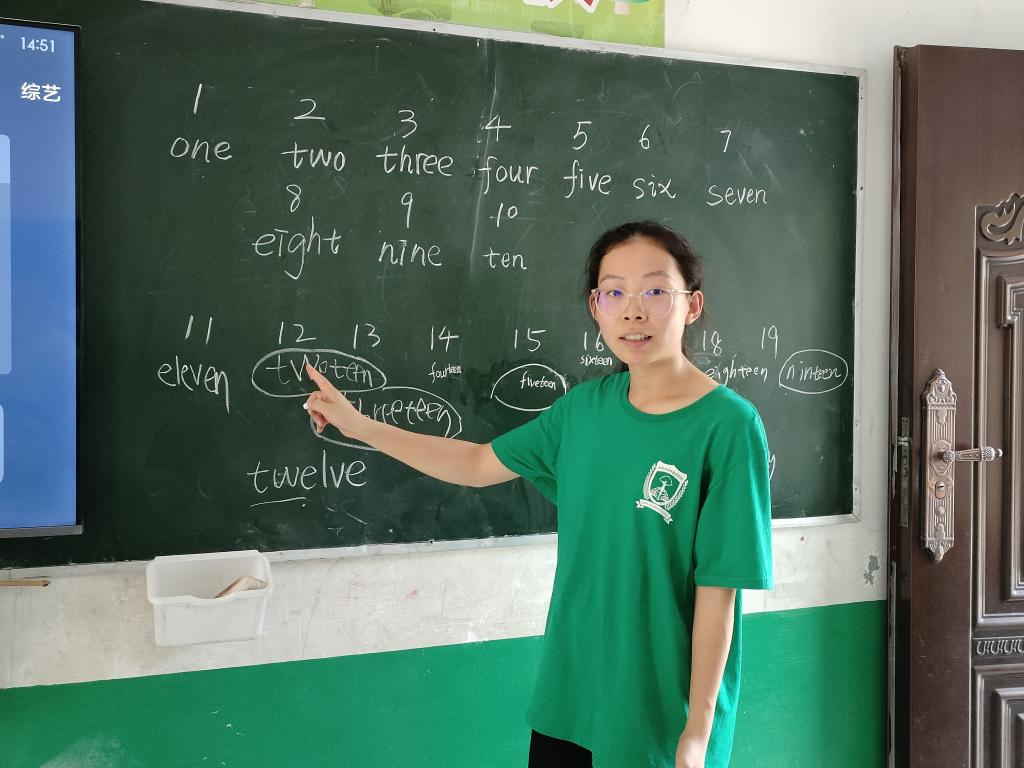 14:51
综艺
1 2 3 4 5 6 7
one two three four five six seven
8 9 10
eight nine ten
11 12 13 14 15 16 18 19
eleven twoten fourteen fiveteen sixteen eighteen ninteen
threeteen
twelve